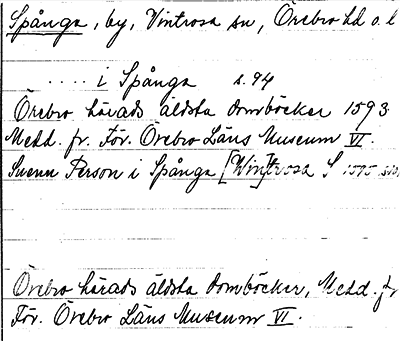 Spånga, by, Vintrosa sn, Örebro hd o. l
.... i Spånga s. 94
Örebro härads äldsta domböcker 1593
Medd. fr. För. Örebro Läns Museum VI.
Suenn Person i Spånga [Win]trosa S 1595
Örebro härads äldsta domböcker, Medd. fr
För. Örebro Läns Museum VI.